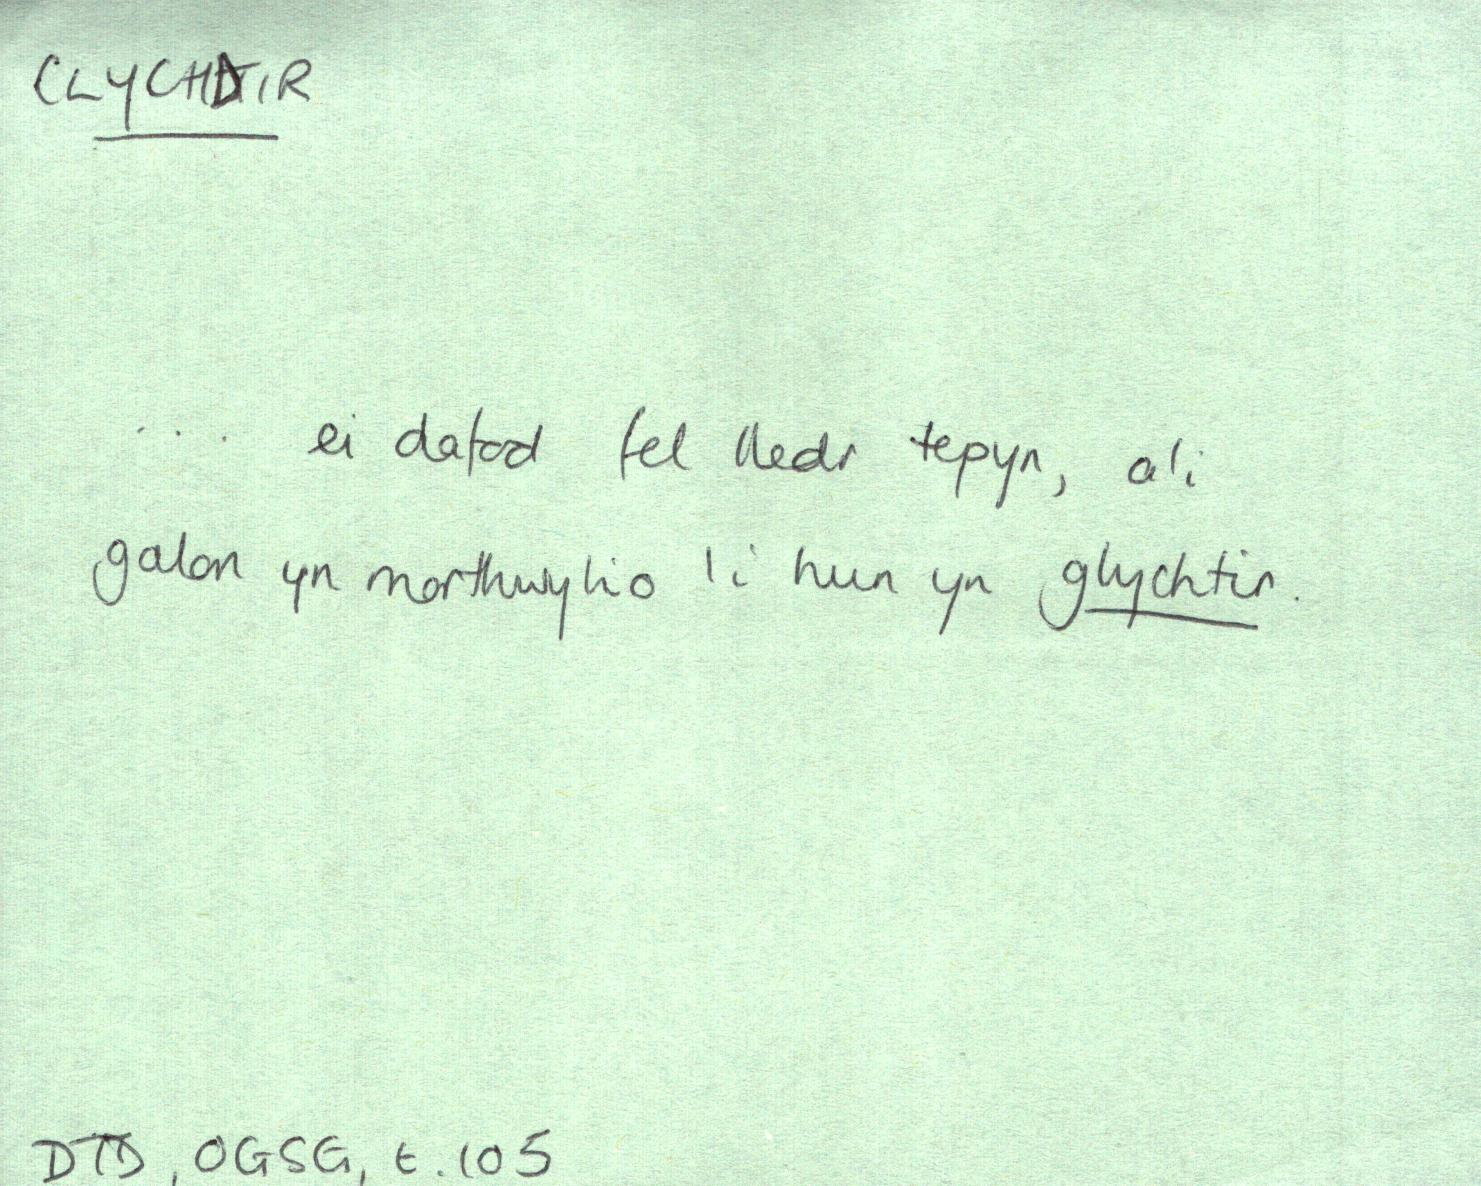 CLYCHDIR
.... ei datod fel lledr tepyn, a'i
galon yn morthwylio 'i hun yn glychtir.
DTD, OGSG, t. 105